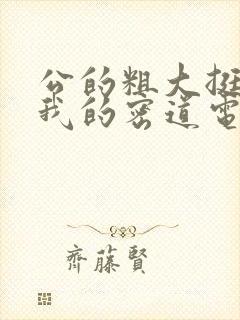 公的粗大挺
我的密道電
齊藤賢